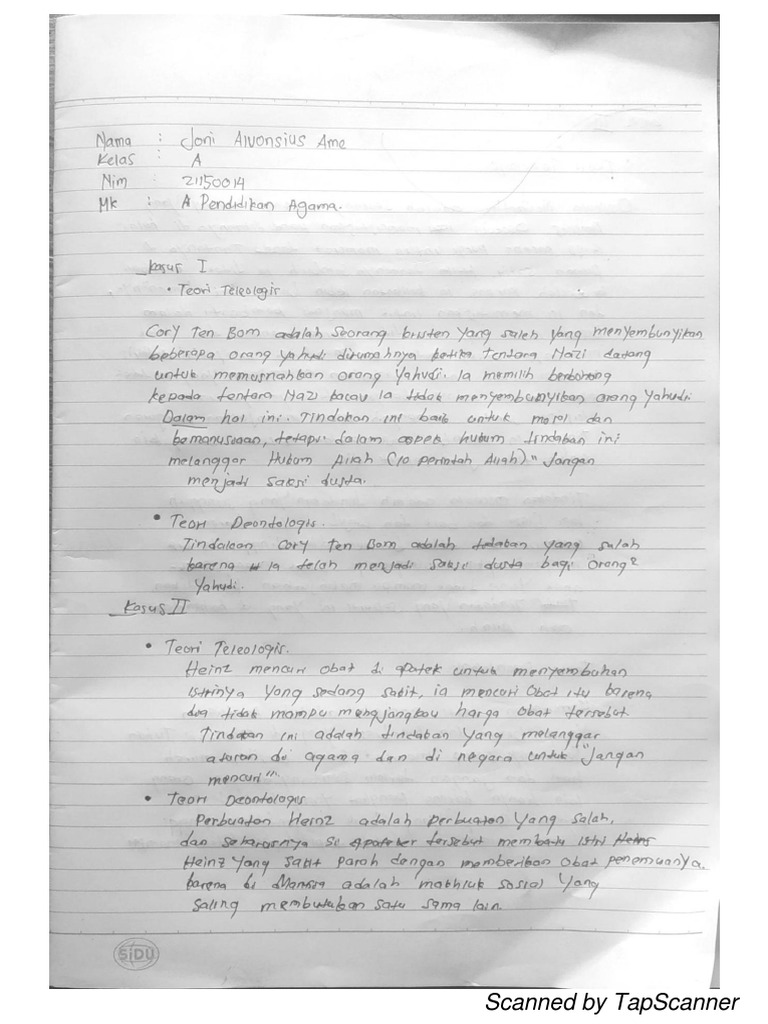 Nama : Joni Alvonsius Ame
Kelas : A
Nim : 21150014
Mk : A Pendidikan Agama.
Kasus I
• Teori Teleologis
Cory Ten Bom adalah seorang kristen yang saleh yang menyembunyikan
beberapa orang yahudi dirumahnya ketika tentara Nazi datang
untuk memusnahkan orang Yahudi. Ia memilih berbohong
kepada tentara Nazi kalau ia tidak menyembunyikan orang Yahudi
Dalam hal ini. Tindakan ini baik untuk moral dan
kemanusiaan, tetapi dalam aspek hukum tindakan ini
melanggar Hukum Allah (10 perintah Allah) "Jangan
menjadi saksi dusta.
• Teori Deontologis.
Tindakan Cory Ten Bom adalah tidakan yang salah
karena ia telah menjadi saksi dusta bagi orang2
Yahudi.
Kasus II
• Teori Teleologis.
Heinz mencuri obat di apotek untuk menyembuhan
istrinya yang sedang sakit, ia mencuri obat itu karena
dia tidak mampu mengjangkau harga obat tersebut.
Tindakan ini adalah tindakan yang melanggar
aturan di agama dan di negara untuk "Jangan
mencuri".
• Teori Deontologis
Perbuatan Heinz adalah perbuatan yang salah,
dan seharusnya si apoteker tersebut membatu istri Heins
Heinz yang sakit parah dengan memberikan obat penemuanya.
karena di Manusia adalah makhluk sosial yang
saling membutukan satu sama lain.
SiDU
Scanned by TapScanner